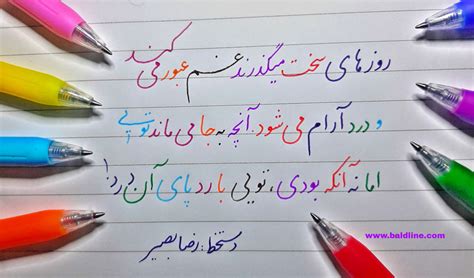 روزهای سخت میگذرند غم عبور می کند
و درد آرام می شود. آنچه به جا می ماند تویی
اما نه آنکه بودی، تویی با رد پای آن درد!
www.baldline.com
دستخط: رضا بصیر